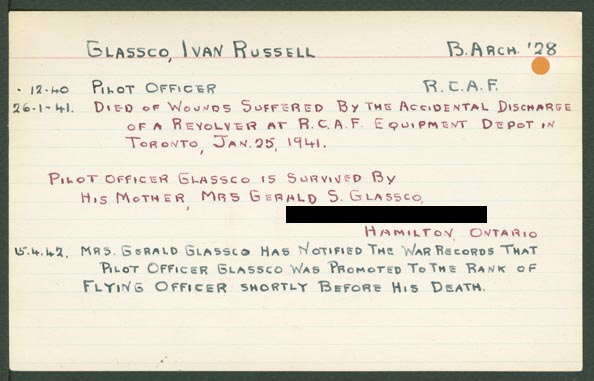 GLASSCO, IVAN RUSSELL B. ARCH. '28
. 12-40 PILOT OFFICER R.C.A.F.
26-1-41. DIED OF WOUNDS SUFFERED BY THE ACCIDENTAL DISCHARGE
OF A REVOLVER AT R.C.A.F. EQUIPMENT DEPOT IN
TORONTO, JAN. 25, 1941.
PILOT OFFICER GLASSCO IS SURVIVED BY
HIS MOTHER, MRS GERALD S. GLASSCO,
HAMILTON, ONTARIO
15.4.42. MRS. GERALD GLASSCO HAS NOTIFIED THE WAR RECORDS THAT
PILOT OFFICER GLASSCO WAS PROMOTED TO THE RANK OF
FLYING OFFICER SHORTLY BEFORE HIS DEATH.